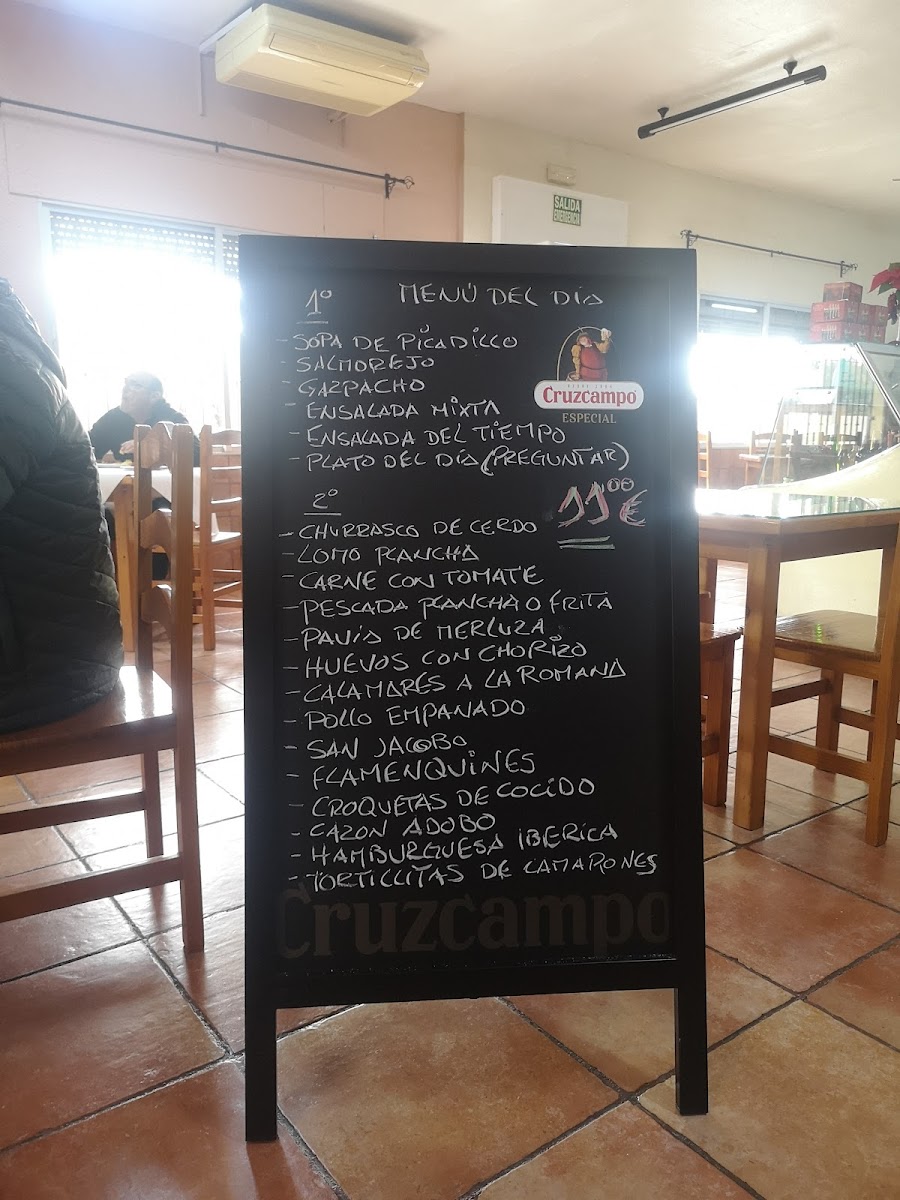 SALIDA
EMERGENCIA
1º MENÚ DEL DÍA
- SOPA DE PICADILLO
- SALMOREJO
- GAZPACHO
- ENSALADA MIXTA
- ENSALADA DEL TIEMPO
- PLATO DEL DÍA (PREGUNTAR)
Cruzcampo
ESPECIAL
11'00€
2º
- CHURRASCO DE CERDO
- LOMO PLANCHA
- CARNE CON TOMATE
- PESCADA PLANCHA O FRITA
- PAVIA DE MERLUZA
- HUEVOS CON CHORIZO
- CALAMARES A LA ROMANA
- POLLO EMPANADO
- SAN JACOBO
- FLAMENQUINES
- CROQUETAS DE COCIDO
- CAZON ADOBO
- HAMBURGUESA IBERICA
- TORTILLITAS DE CAMARONES
Cruzcampo